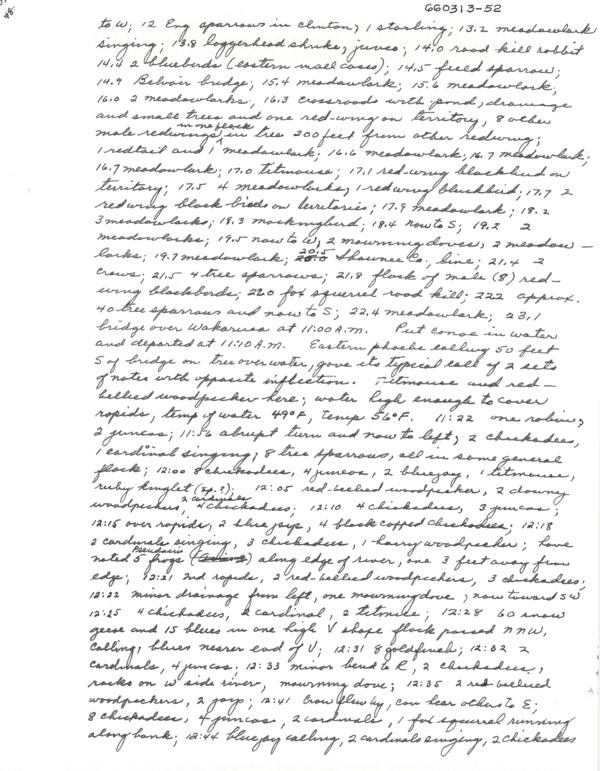 660313-52
to W; 12 Eng sparrows in Clinton, 1 starling; 13.2 meadowlark
singing; 13.8 loggerhead shrike, junco; 14.0 road kill rabbit
14.4 2 bluebirds (eastern in all cases); 14.5 field sparrow;
14.9 Belvoir bridge; 15.4 meadowlark; 15.6 meadowlark;
16.0 2 meadowlarks, 16.3 crossroads with pond, drainage
and small trees and one red-wing on territory, 8 other
male redwings in one flock in tree 200 feet from other redwing;
1 redtail and 1 meadowlark; 16.6 meadowlark; 16.7 meadowlark;
16.7 meadowlark; 17.0 titmouse; 17.1 red-wing blackbird on
territory; 17.5 4 meadowlarks, 1 redwing blackbird; 17.7 2
redwing black birds on territories; 17.9 meadowlark; 18.2
3 meadowlarks; 18.3 mockingbird; 18.4 now to S; 19.2 2
meadowlarks; 19.5 now to W, 2 mourning doves, 2 meadow-
larks; 19.7 meadowlark; 20.5 Shawnee Co. line; 21.4 2
crows; 21.5 4 tree sparrows; 21.8 flock of male (8) red-
wing blackbirds; 22.0 fox squirrel road kill; 22.2 approx.
40 tree sparrows and now to S; 22.4 meadowlark; 23.1
bridge over Wakarusa at 11:00 A.M. Put canoe in water
and departed at 11:10 A.M. Eastern phoebe calling 50 feet
S of bridge on tree over water, gave its typical call of 2 sets
of notes with opposite inflection. Titmouse and red-
bellied woodpecker here; water high enough to cover
rapids, temp of water 49°F, temp 56°F. 11:22 one robin,
2 juncos; 11:56 abrupt turn and now to left, 2 chickadees,
1 cardinal singing, 8 tree sparrows, all in same general
flock; 12:00 8 chickadees, 4 juncos, 2 bluejay, 1 titmouse,
ruby kinglet (sp.?); 12:05 red-bellied woodpecker, 2 downy
woodpeckers, 2 cardinals, 4 chickadees; 12:10 4 chickadees, 3 juncos;
12:15 over rapids, 2 blue jays, 4 black capped chickadees; 12:18
2 cardinals singing, 3 chickadees, 1 hairy woodpecker; have
noted 5 frogs (Pseudacris) along edge of river, one 3 feet away from
edge; 12:21 2nd rapids, 2 red-bellied woodpeckers, 3 chickadees;
12:22 minor drainage from left, one mourning dove, now toward SW
12:25 4 chickadees, 2 cardinal, 2 titmice; 12:28 60 snow
geese and 15 blues in one high V shape flock passed NNW,
calling, blues nearer end of V; 12:31 8 goldfinch; 12:32 2
cardinals, 4 juncos; 12:33 minor bend to R, 2 chickadees,
rocks on W side river, mourning dove; 12:35 2 red-bellied
woodpeckers, 2 jays; 12:41 Crow flew by, can hear others to E;
8 chickadees, 4 juncos, 2 cardinals, 1 fox squirrel running
along bank; 12:44 bluejay calling, 2 cardinals singing, 2 chickadees